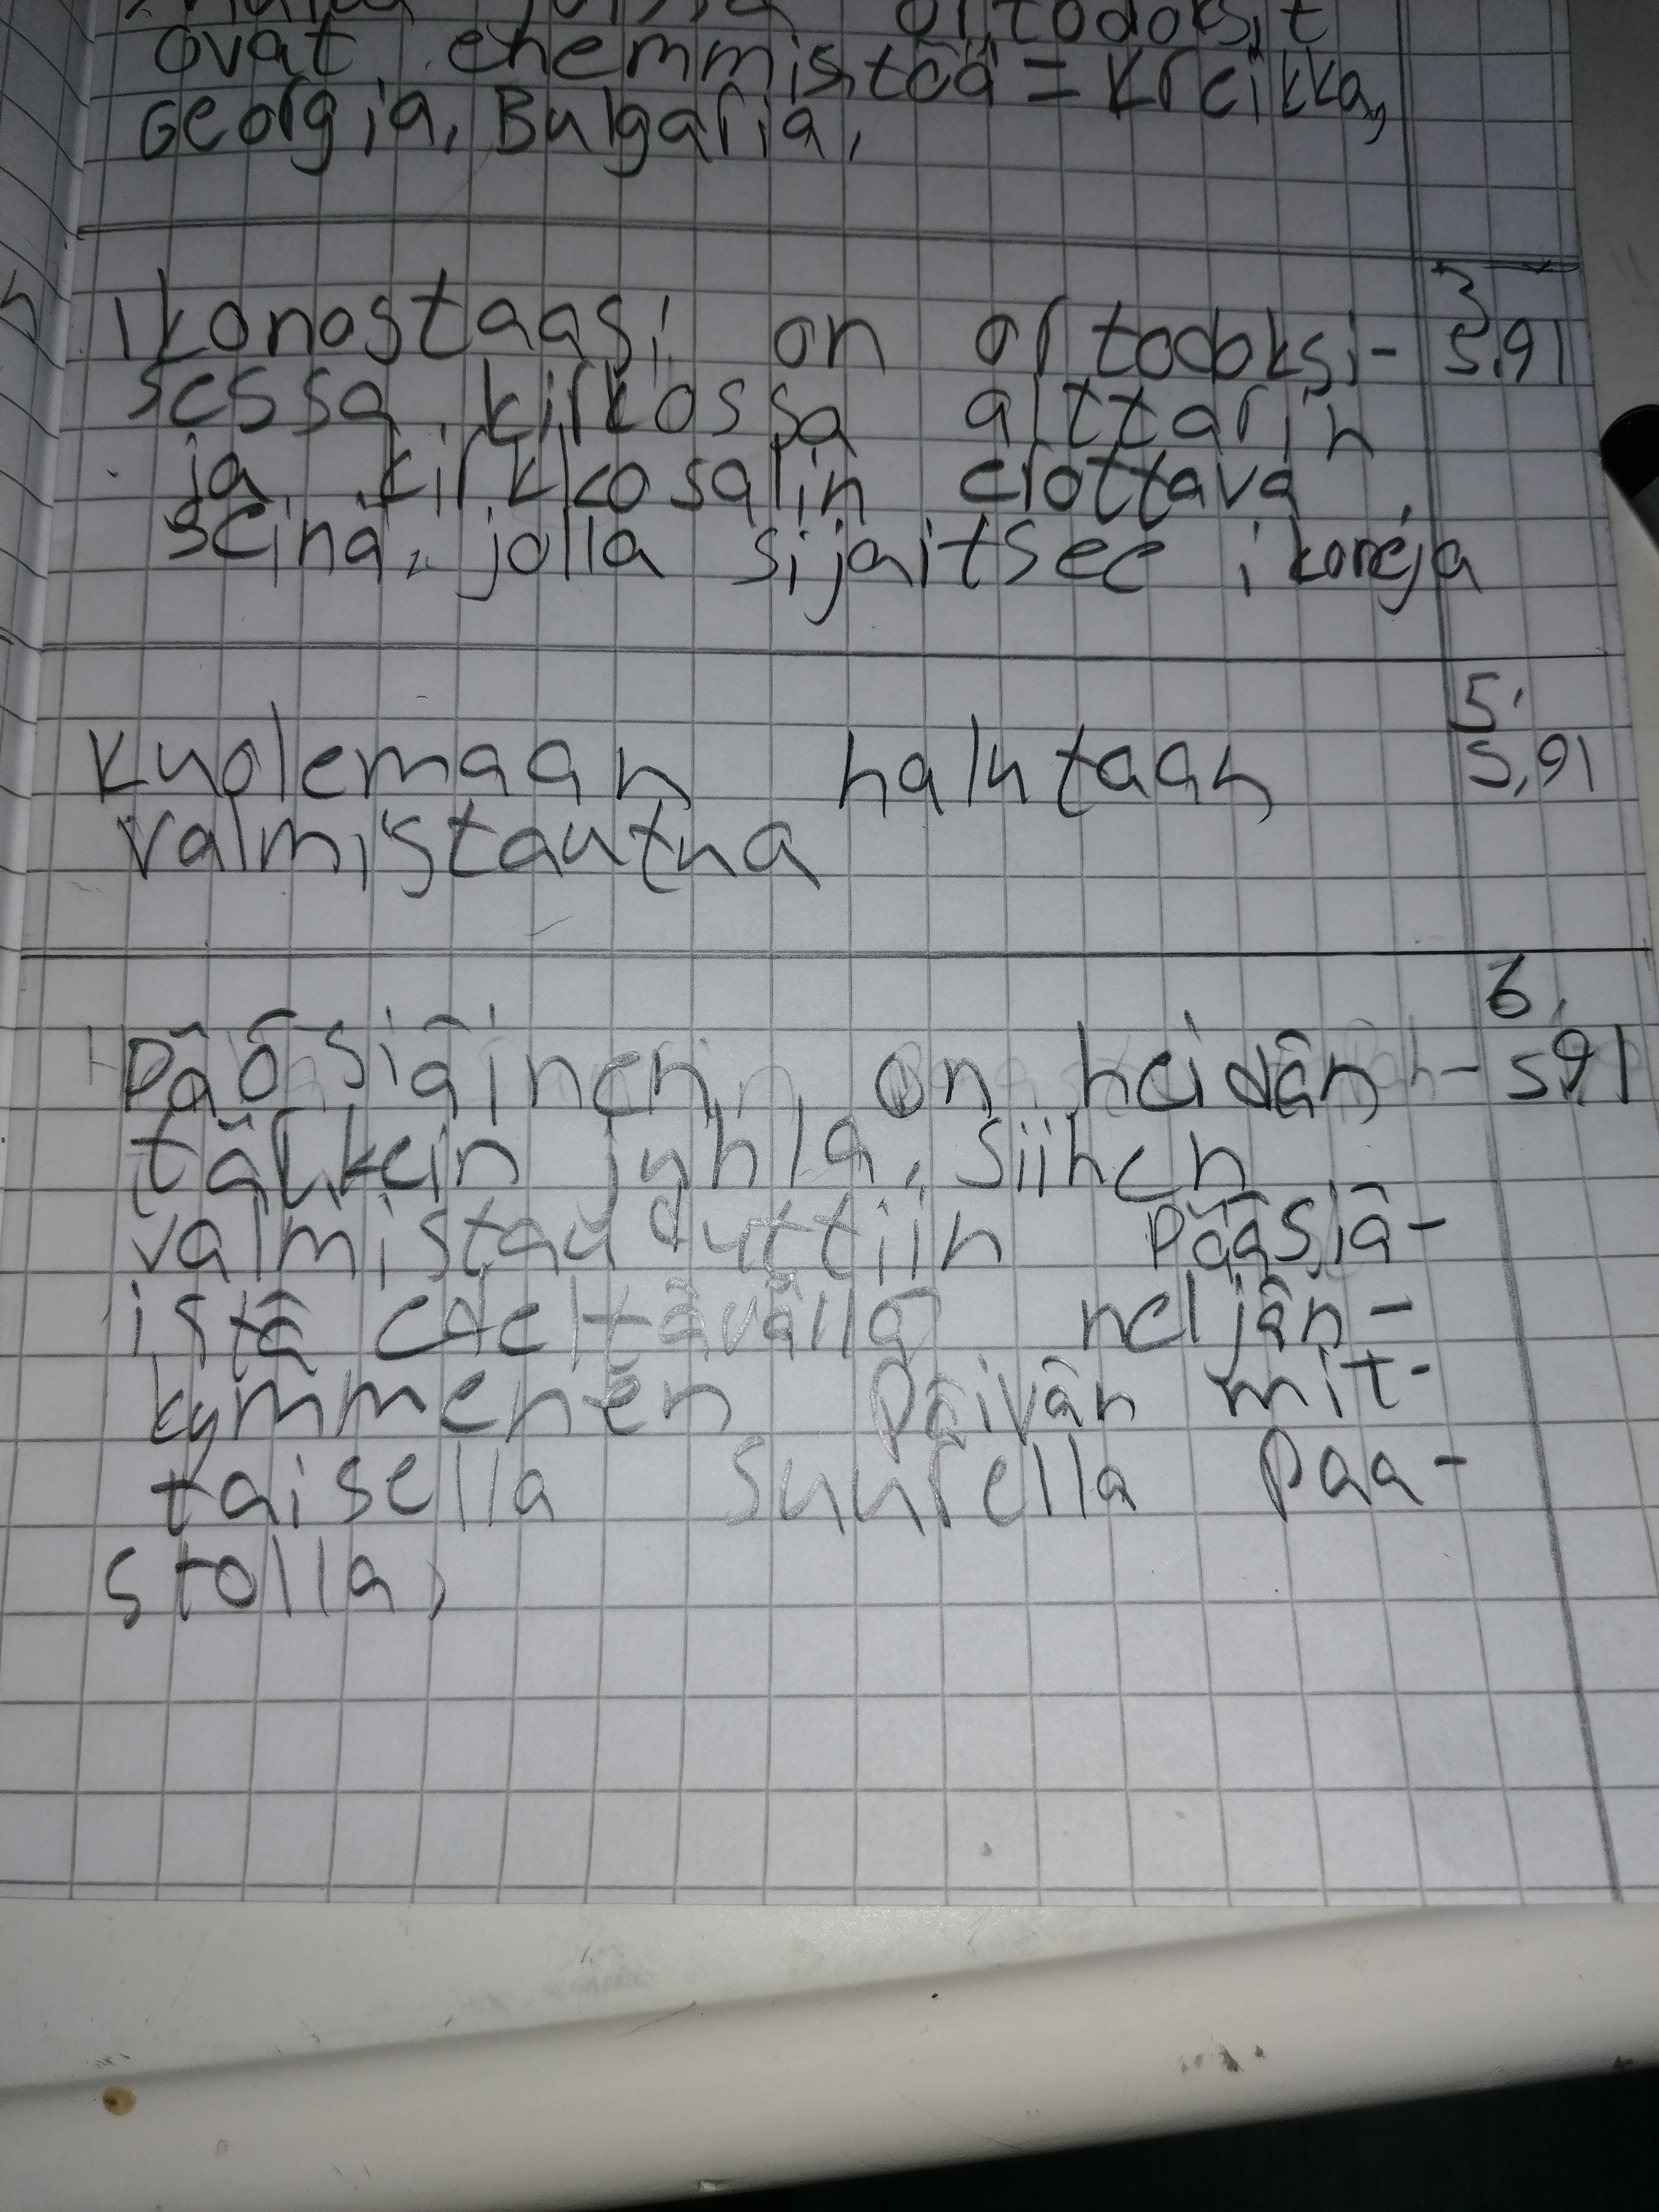 maita joissa ortodoksit
ovat enemmistöä = Kreikka,
Georgia, Bulgaria,
3
Ikonostaasi on ortodoksi- s,91
sessa kirkossa alttarin
ja kirkkosalin erottava
seinä, jolla sijaitsee ikoneja
5.
Kuolemaan halutaan s,91
valmistautua
6.
Pääsiäinen on heidän- s,91
tärkein juhla, siihen
valmistauduttiin Pääsiä-
istä edeltävällä neljän-
kymmenen Päivän mit-
taisella suurella Paa-
stolla,